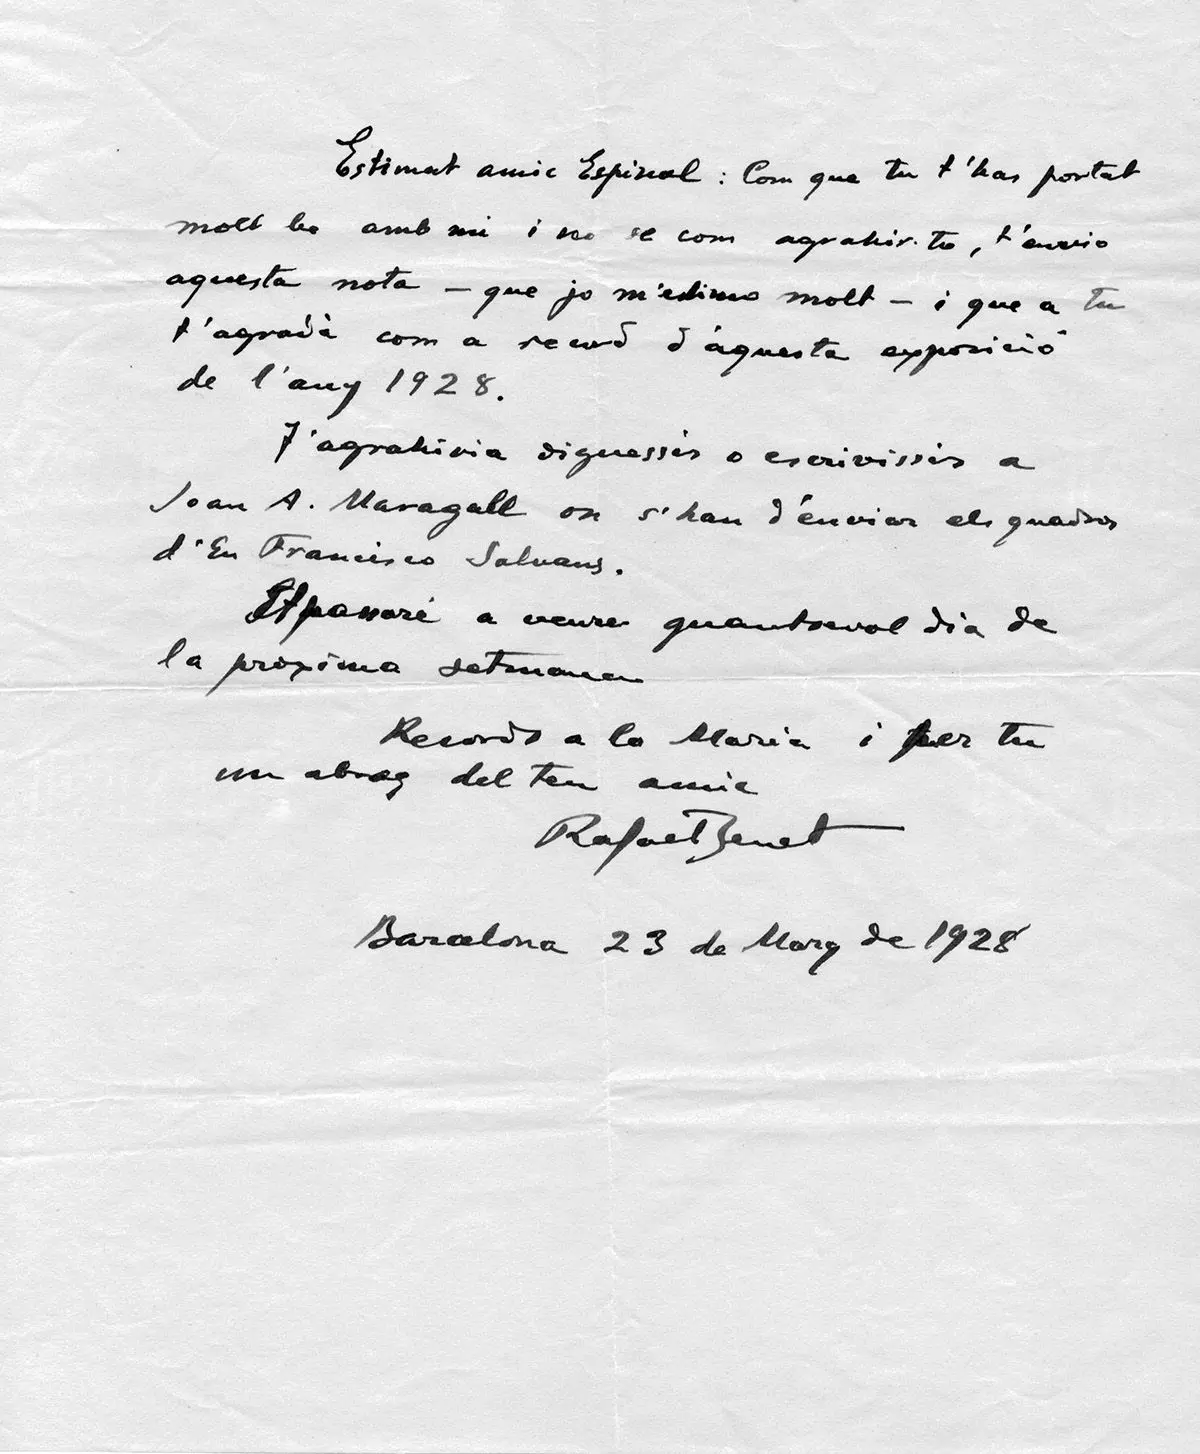 Estimat amic Espinal: Com que tu t'has portat
molt be amb mi i no se com agrahir-te, t'envio
aquesta nota – que jo m'estimo molt – i que a tu
t'agradà com a record d'aquesta exposició
de l'any 1928.
T'agrahiria diguessis o escrivissis a
Joan A. Maragall on s'han d'enviar els quadros
d'En Francisco Salvans.
Et passaré a veure quantsevol dia de
la proxima setmana
Records a la Maria i per tu
un abraç del teu amic
Rafael Benet
Barcelona 23 de Març de 1928